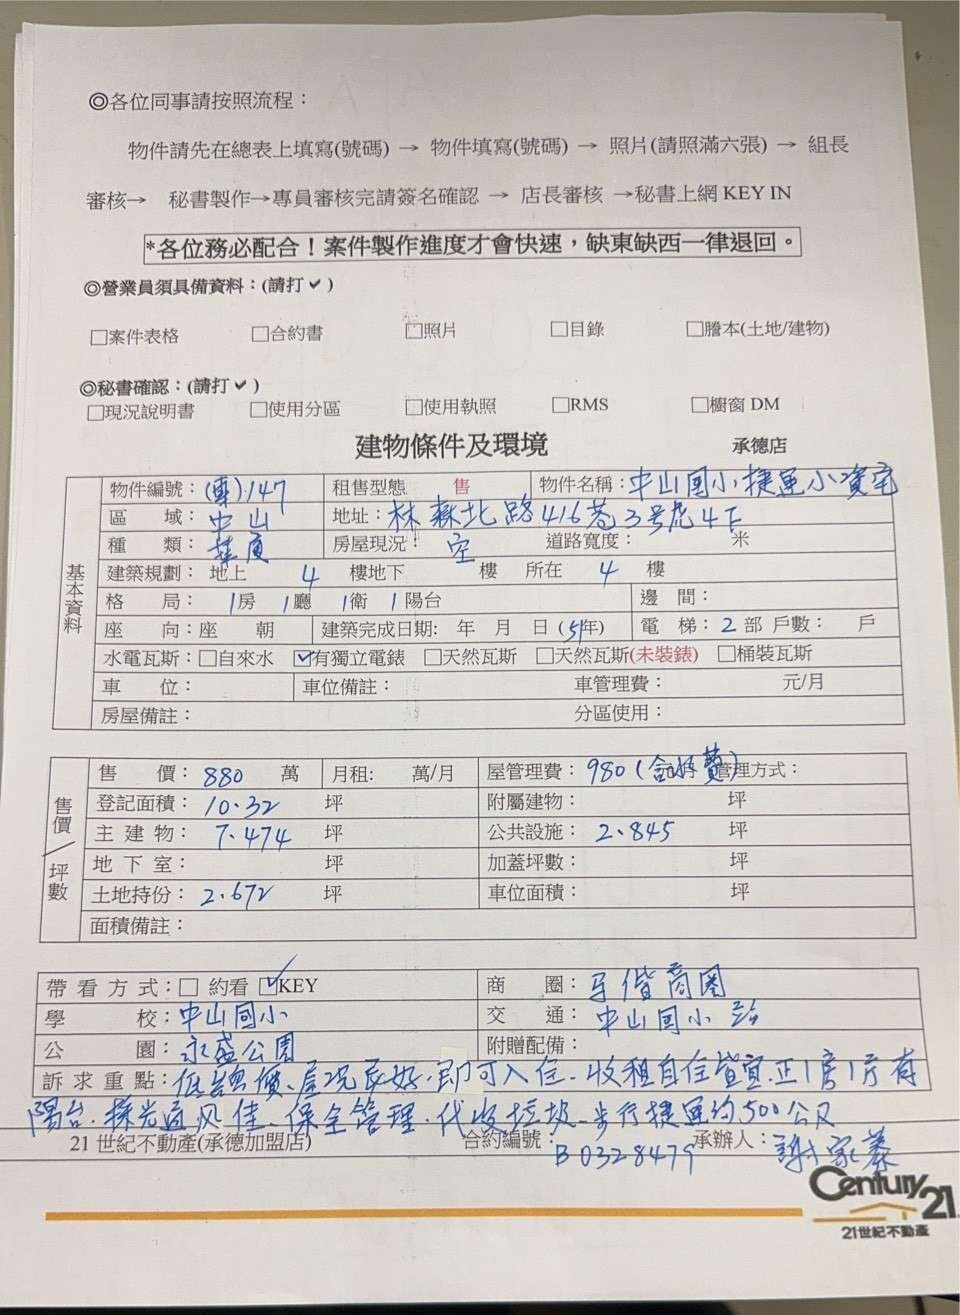 ◎各位同事請按照流程：
物件請先在總表上填寫(號碼) → 物件填寫(號碼) → 照片(請照滿六張) → 組長
審核→ 秘書製作→專員審核完請簽名確認 → 店長審核 →秘書上網 KEY IN
*各位務必配合！案件製作進度才會快速，缺東缺西一律退回。
◎營業員須具備資料：(請打✔)
□案件表格 □合約書 □照片 □目錄 □謄本(土地/建物)
◎秘書確認：(請打✔)
□現況說明書 □使用分區 □使用執照 □RMS □櫥窗 DM
建物條件及環境 承德店
基本資料
物件編號：(專)147 租售型態 售 物件名稱：中山國小捷運小資宅
區 域：中山 地址：林森北路416巷3号虎4F
種 類：華廈 房屋現況：空 道路寬度： 米
建築規劃：地上 4 樓地下 樓 所在 4 樓
格 局： 1房 1廳 1衛 1陽台 邊 間：
座 向：座 朝 建築完成日期: 年 月 日 (51年) 電 梯：2 部 戶數： 戶
水電瓦斯：□自來水 ☑有獨立電錶 □天然瓦斯 □天然瓦斯(未裝錶) □桶裝瓦斯
車 位： 車位備註： 車管理費： 元/月
房屋備註： 分區使用：
售價/坪數
售 價：880 萬 月租: 萬/月 屋管理費：980(含水費) 管理方式：
登記面積：10.32 坪 附屬建物： 坪
主 建 物：7.474 坪 公共設施：2.845 坪
地 下 室： 坪 加蓋坪數： 坪
土地持份：2.672 坪 車位面積： 坪
面積備註：
帶 看 方 式：□ 約看 ☑KEY 商 圈：馬偕商圈
學 校：中山國小 交 通：中山國小站
公 園：永盛公園 附贈配備：
訴 求 重 點：低總價、屋況良好.即可入住.收租自住皆宜.正1房1厅有
陽台.採光通风佳.保全管理.代收垃圾.步行捷運約500公尺
21 世紀不動產(承德加盟店) 合約編號：B0328479 承辦人：謝家蓁
Century 21
21世紀不動產